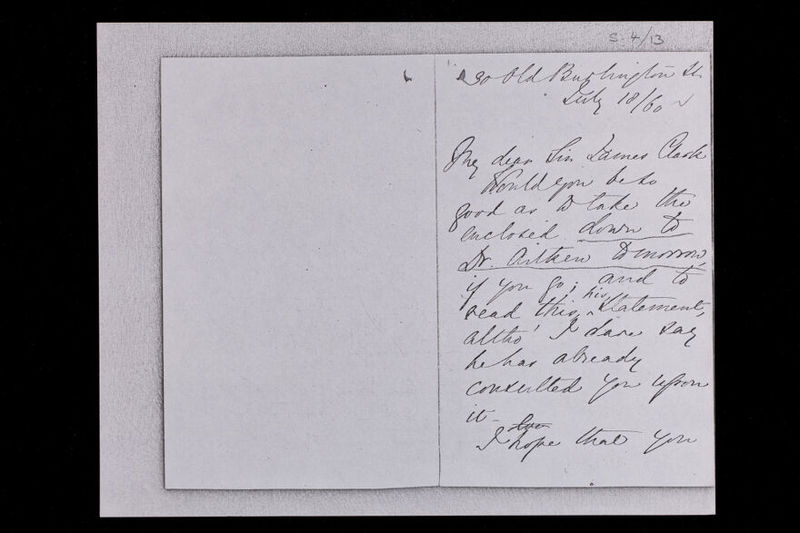 S. 4/13
30 Old Burlington St
July 18/60
My dear Sir James Clark
Would you be so
good as to take the
enclosed down to
Dr. Aitken tomorrow,
if you go; and to
read this, his statement,
altho' I dare say
he has already
consulted you upon
it -
I hope that you